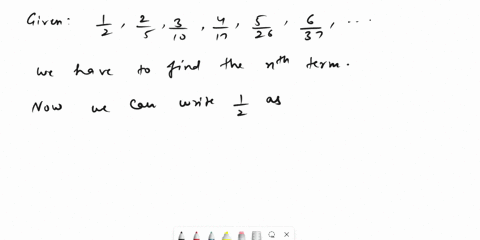 Given: 1/2, 2/5, 3/10, 4/17, 5/26, 6/37, ...
we have to find the nth term.
Now we can write 1/2 as